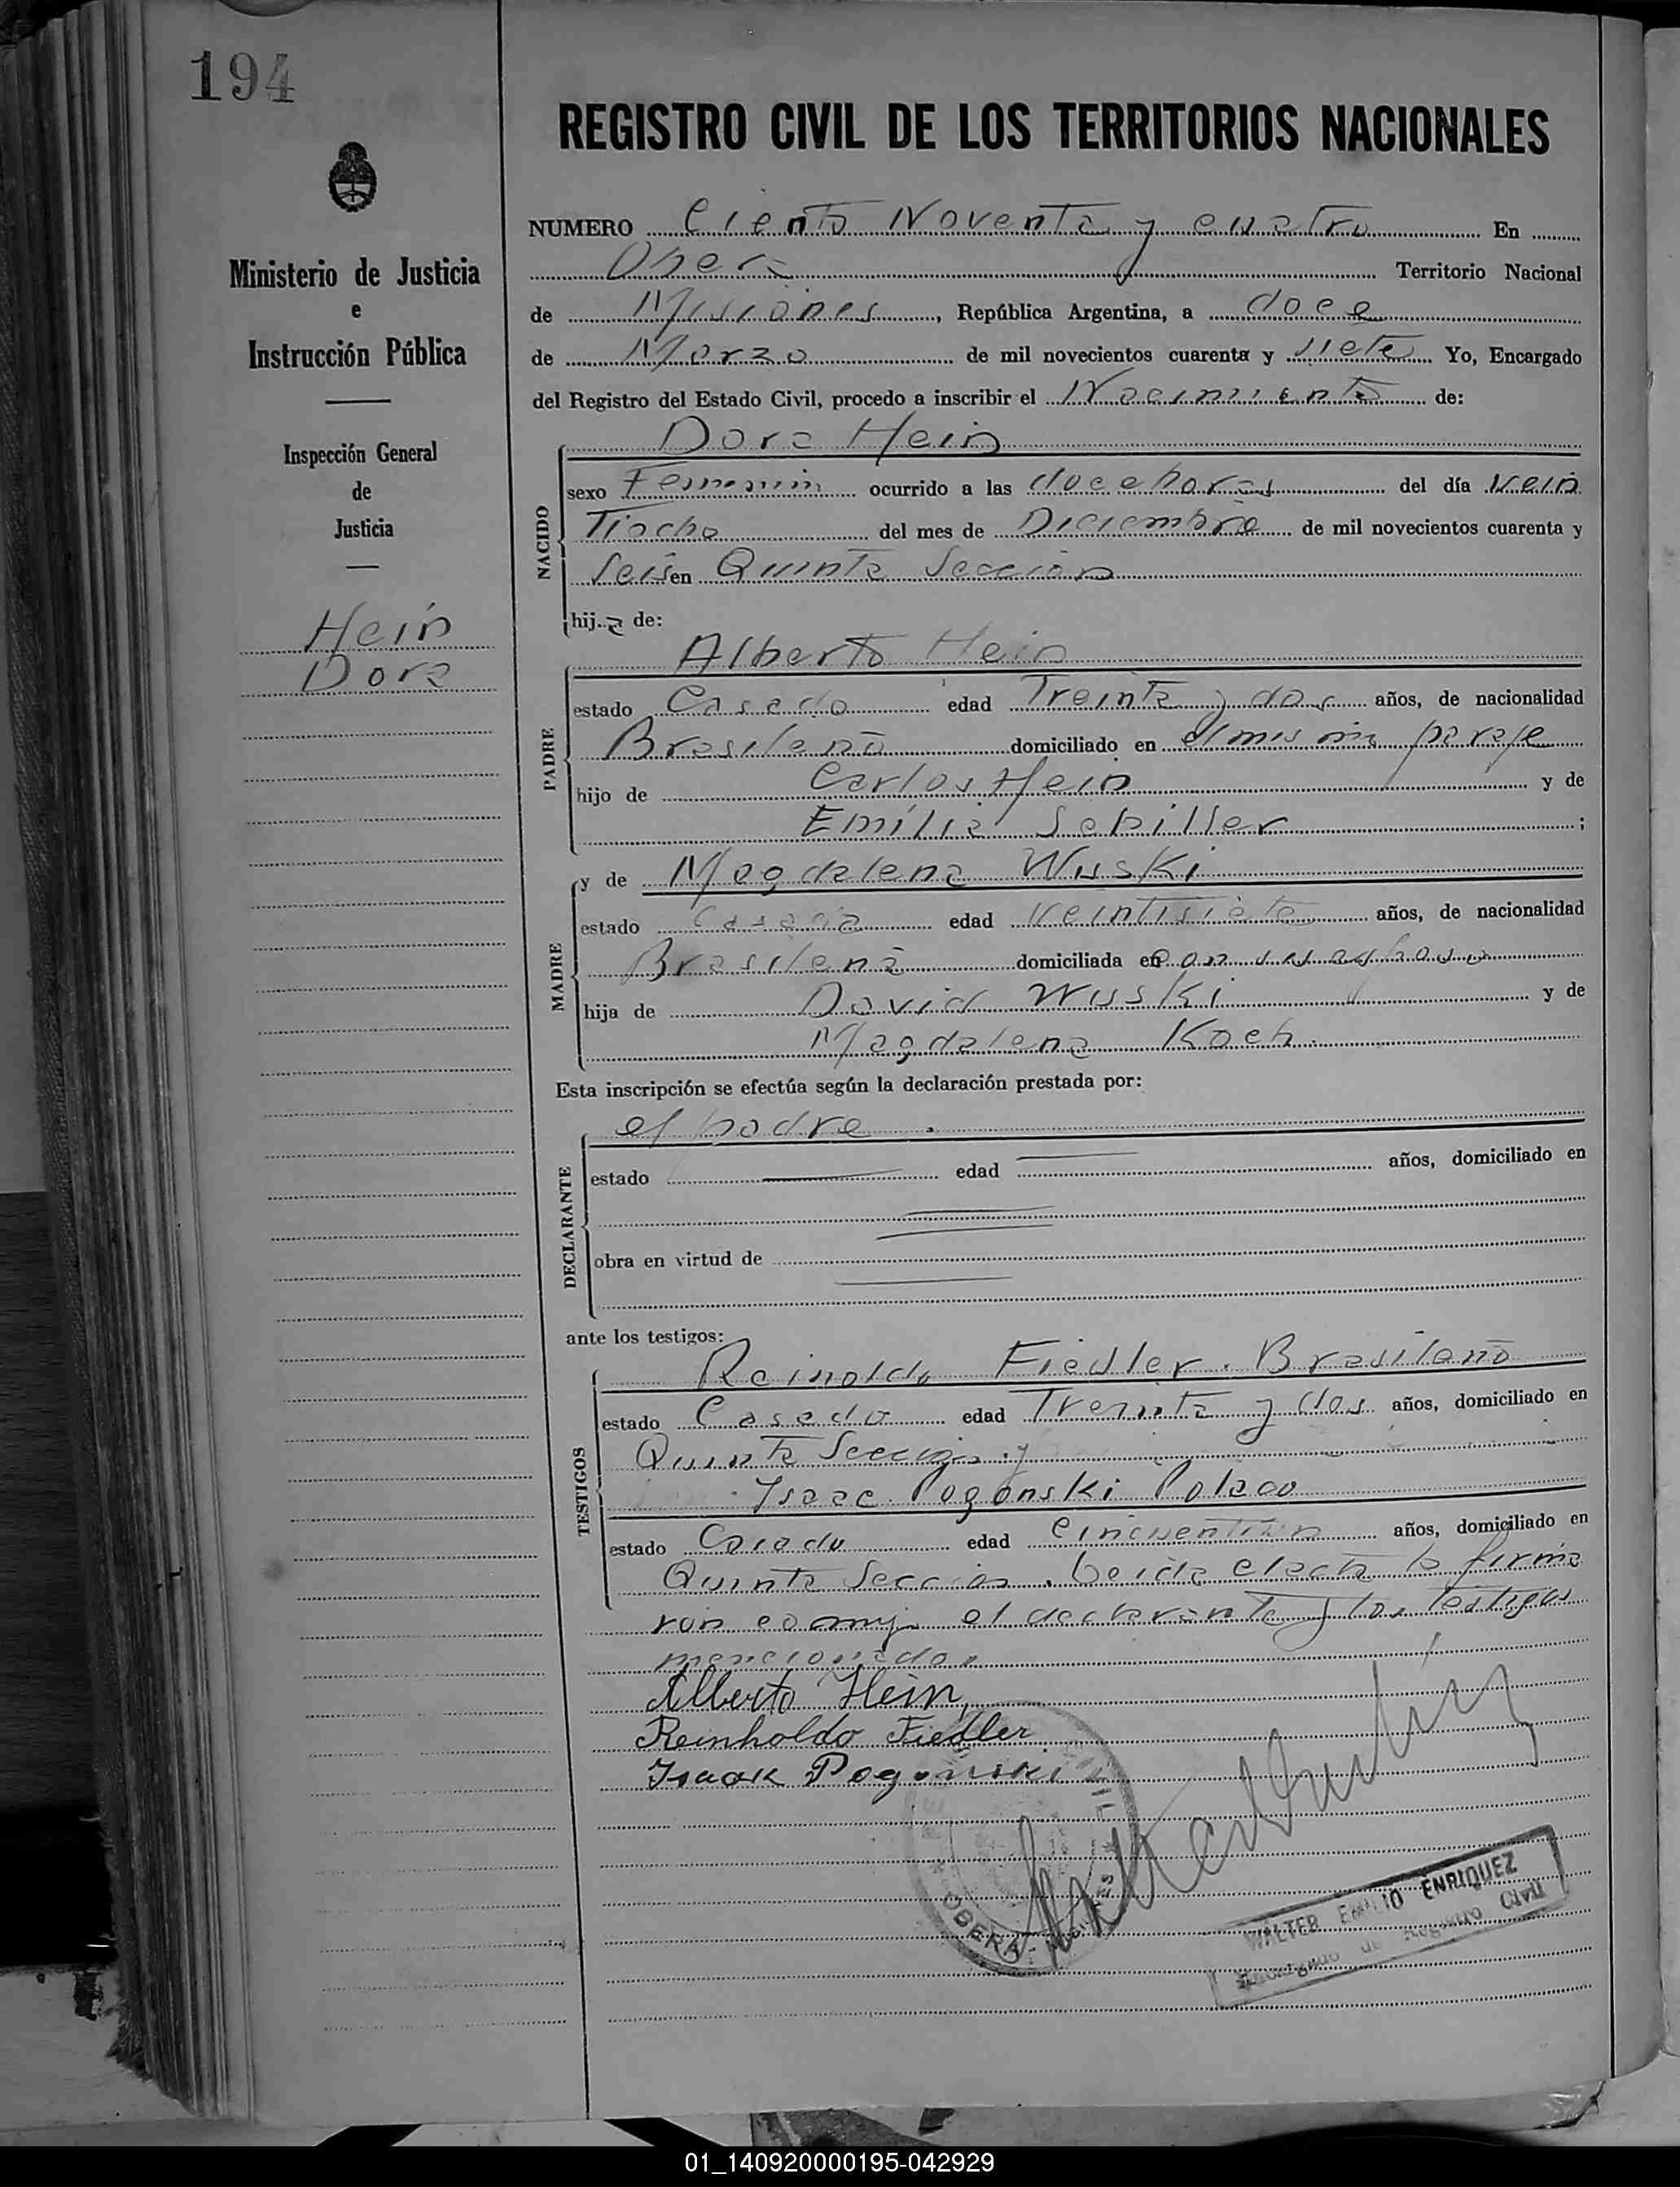 194
REGISTRO CIVIL DE LOS TERRITORIOS NACIONALES
Ministerio de Justicia
e
Instrucción Pública
Inspección General
de
Justicia
Hein
Dora
NUMERO Ciento Noventa y cuatro En
Obera Territorio Nacional
de Misiones, República Argentina, a doce
de Marzo de mil novecientos cuarenta y siete Yo, Encargado
del Registro del Estado Civil, procedo a inscribir el Nacimiento de:
Dora Hein
NACIDO
sexo Femenin ocurrido a las doce horas del día vein
Tiocho del mes de Diciembre de mil novecientos cuarenta y
Seis en Quinta Seccion
hij a de:
Alberto Hein
PADRE
estado Casado edad Treinta y dos años, de nacionalidad
Brasileño domiciliado en el mismo paraje
hijo de Carlos Hein y de
Emilia Schiller ;
y de Magdalena Wuski
MADRE
estado Casada edad Veintisiete años, de nacionalidad
Brasileña domiciliada en con su esposo
hija de David Wuski y de
Magdalena Koch.
Esta inscripción se efectúa según la declaración prestada por:
el padre.
DECLARANTE
estado edad años, domiciliado en
obra en virtud de
ante los testigos:
TESTIGOS
Reinoldo Fiedler. Brasileño
estado Casado edad Treinta y dos años, domiciliado en
Quinta Seccion y
Isaac Pogonski Polaco
estado Casado edad Cincuentiun años, domiciliado en
Quinta Seccion. Leida el acta la firma
ron conmigo el declarante y los testigos
mencionados
Alberto Hein,
Reinholdo Fiedler
Isaak Pogonski
CIVIL
OBERA
WALTER EMILIO ENRIQUEZ
Encargado de Registro Civil
01_140920000195-042929